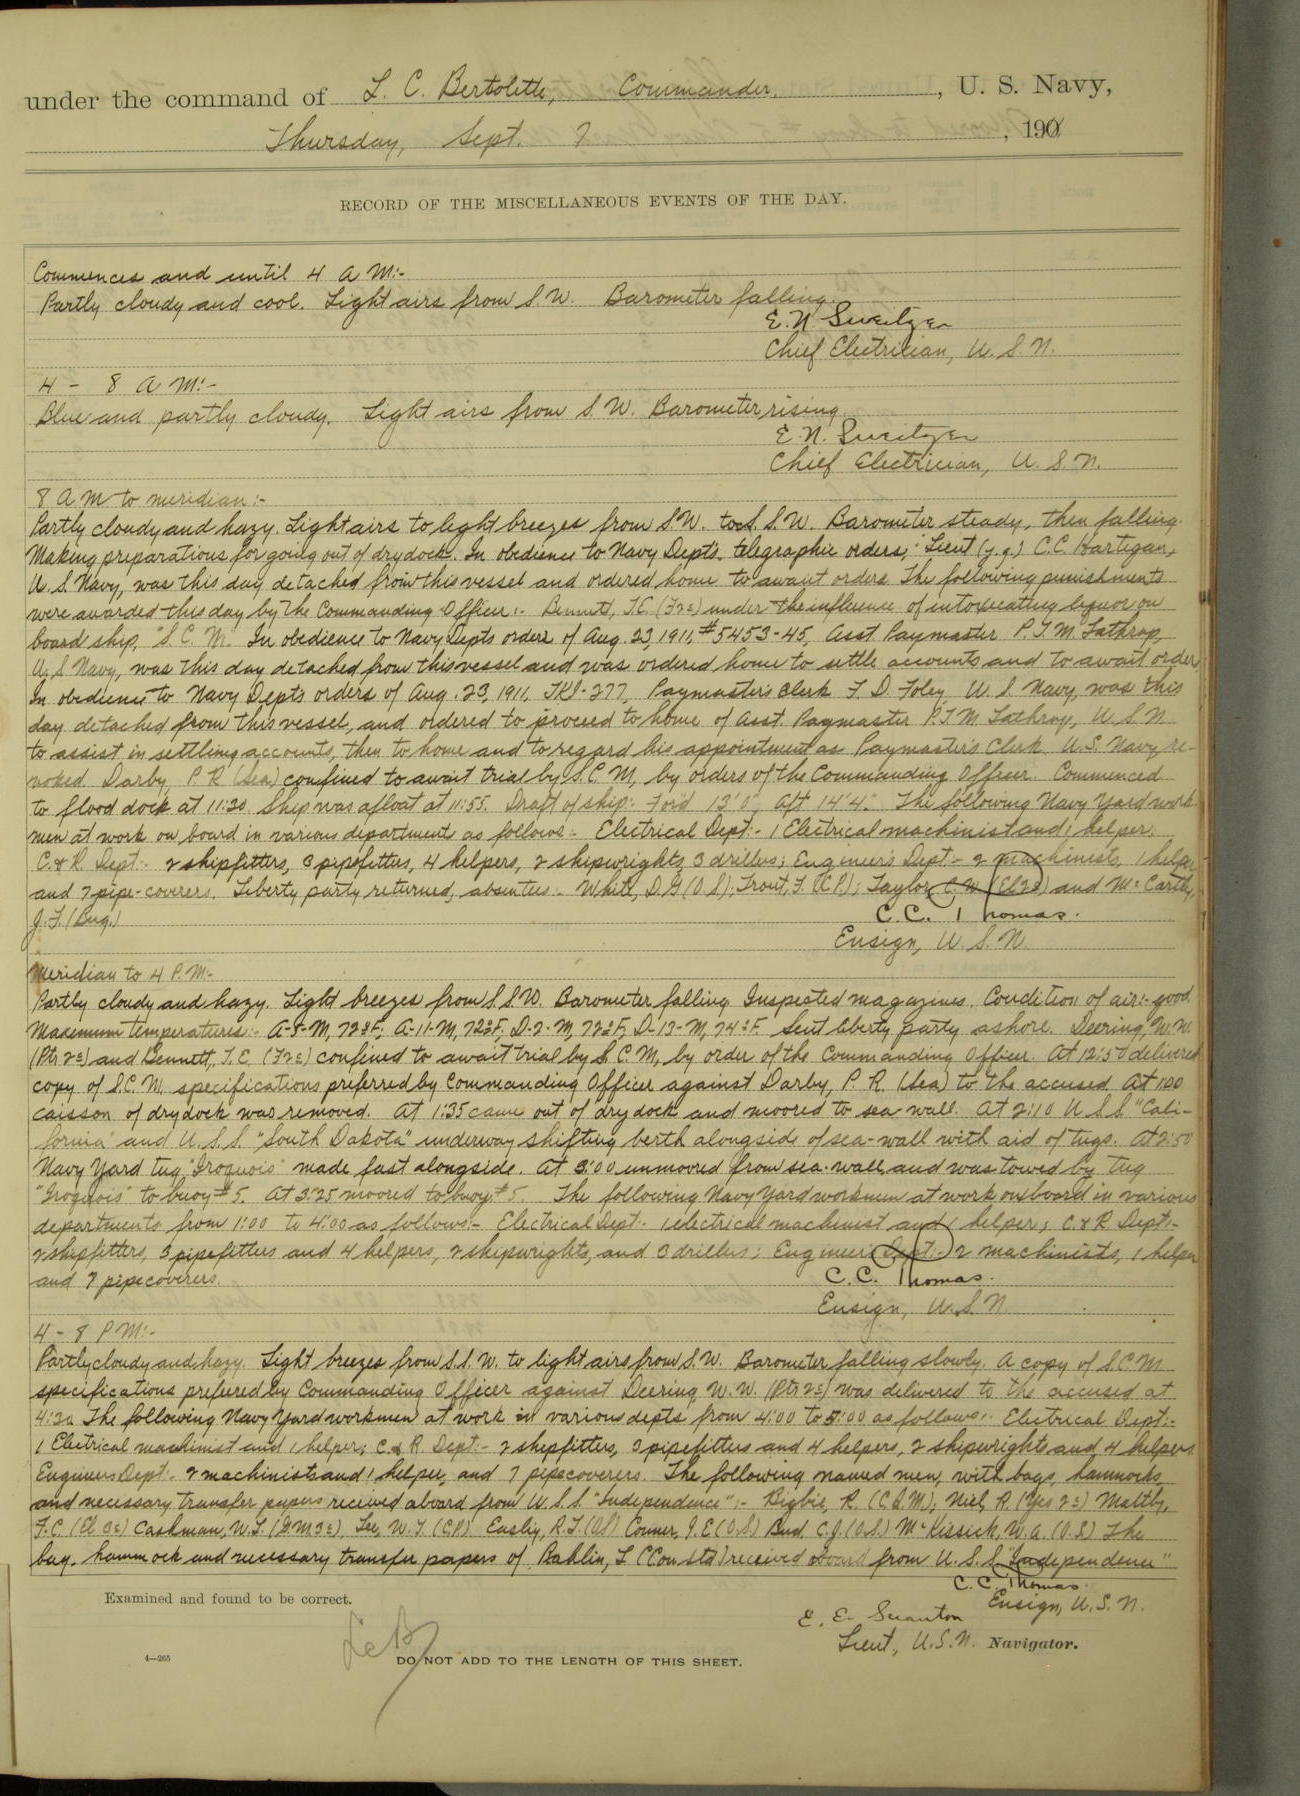 under the command of L. C. Bertolette, Commander, U. S. Navy,
Thursday, Sept. 7, 190
RECORD OF THE MISCELLANEOUS EVENTS OF THE DAY.
Commences and until 4 A M:-
Partly cloudy and cool. Light airs from S.W. Barometer falling.
E. N. Sweitzer
Chief Electrician, U. S. N.
4 - 8 A M:-
Blue and partly cloudy. Light airs from S. W. Barometer rising.
E. N. Sweitzer
Chief Electrician, U. S. N.
8 A M to meridian:-
Partly cloudy and hazy. Light airs to light breezes from S.W. to S.S.W. Barometer steady, then falling.
Making preparations for going out of drydock. In obedience to Navy Dept's. telegraphic orders, Lieut (j.g.) C.C. Hartigan,
U. S. Navy, was this day detached from this vessel and ordered home to await orders. The following punishments
were awarded this day by the Commanding Officer:- Bennett, T.C. (F2c) under the influence of intoxicating liquor on
board ship, "S. C. M." In obedience to Navy Depts orders of Aug. 23, 1911, #5453-45, Asst Paymaster P.T.M. Lathrop,
U. S Navy, was this day detached from this vessel and was ordered home to settle accounts and to await orders
In obedience to Navy Dept's orders of Aug. 23, 1911, TKI-277, Paymaster's Clerk F. D. Foley, U. S. Navy, was this
day detached from this vessel, and ordered to proceed to home of Asst. Paymaster P.T.M. Lathrop, U. S. N.
to assist in settling accounts, then to home and to regard his appointment as Paymaster's Clerk U.S. Navy, re-
voked. Darby, P. R. (Sea) confined to await trial by S.C.M, by orders of the Commanding Officer. Commenced
to flood dock at 11:20. Ship was afloat at 11:55. Draft of ship: For'd 13' 0", Aft 14' 4". The following Navy Yard work
men at work on board in various department as follows:- Electrical Dept:- 1 Electrical machinist and 1 helper.
C. & R. Dept:- 2 shipfitters, 3 pipefitters, 4 helpers, 2 shipwrights, 3 drillers; Engineer's Dept:- 2 machinists, 1 helper,
and 7 pipe-coverers. Liberty party returned, absentees:- White, D. G (O.S); Trout, F. (C.P.); Taylor, C. W. (El2c) and McCarthy,
J. F. (Bug.)
C. C. Thomas.
Ensign, U. S. N.
Meridian to 4 P. M:-
Partly cloudy and hazy. Light breezes from S.S.W. Barometer falling. Inspected magazines. Condition of air:- good.
Maximum temperatures:- A-8-M, 72°F; A-11-M, 72°F, D-2-M, 72°F, D-13-M, 74°F. Sent liberty party ashore. Deering, W. W.
(Ptr 2c) and Bennett, T. C. (F2c) confined to await trial by S. C. M, by order of the Commanding Officer. At 12:50 delivered
copy of S.C. M. specifications preferred by Commanding Officer against Darby, P. R. (Sea) to the accused. At 1:00
caisson of drydock was removed. At 1:35 came out of dry dock and moored to sea-wall. At 2:10 U. S. S. "Cali-
fornia" and U. S. S. "South Dakota" underway shifting berth alongside of sea-wall with aid of tugs. At 2:50
Navy Yard tug "Iroquois" made fast alongside. At 3:00 unmoored from sea-wall and was towed by tug
"Iroquois" to buoy #5. At 3:25 moored to buoy #5. The following Navy Yard workmen at work onboard in various
departments from 1:00 to 4:00 as follows:- Electrical Dept:- 1 electrical machinist and 1 helper; C. & R. Dept:-
2 shipfitters, 3 pipefitters and 4 helpers, 2 shipwrights, and 3 drillers; Engineer's Dept:- 2 machinists, 1 helper
and 7 pipecoverers.
C. C. Thomas.
Ensign, U. S. N
4 - 8 P M:-
Partly cloudy and hazy. Light breezes from S.S. W. to light airs from S.W. Barometer falling slowly. A copy of S.C.M
specifications preferred by Commanding Officer against Deering, W. W. (Ptr 2c) was delivered to the accused at
4:30. The following Navy Yard workmen at work in various depts from 4:00 to 5:00 as follows:- Electrical Dept:-
1 Electrical machinist and 1 helper; C. & R. Dept:- 2 shipfitters, 3 pipefitters and 4 helpers, 2 shipwrights and 4 helpers
Engineers Dept:- 2 machinists and 1 helper, and 7 pipecoverers. The following named men, with bags, hammocks
and necessary transfer papers received aboard from U. S. S. "Independence":- Bigbie, R. (C.G.M); Niel, R. (Yeo 2c) Maltby,
F. C. (El 3c) Cashman, W. L. (G.M 3c) Lee, W. T. (C.P.) Easly, R. L. (OS) Conner, J. E (O.S) Bud, C. J. (O.S.) McKissick, W. a. (O.S.) The
bag, hammock and necessary transfer papers of Rahlin, L (Con std) received aboard from U. S. S. "Independence"
C. C. Thomas.
Ensign, U. S. N.
Examined and found to be correct.
E. E. Scranton
Lieut., U. S. N. Navigator.
LCB
4—265
DO NOT ADD TO THE LENGTH OF THIS SHEET.